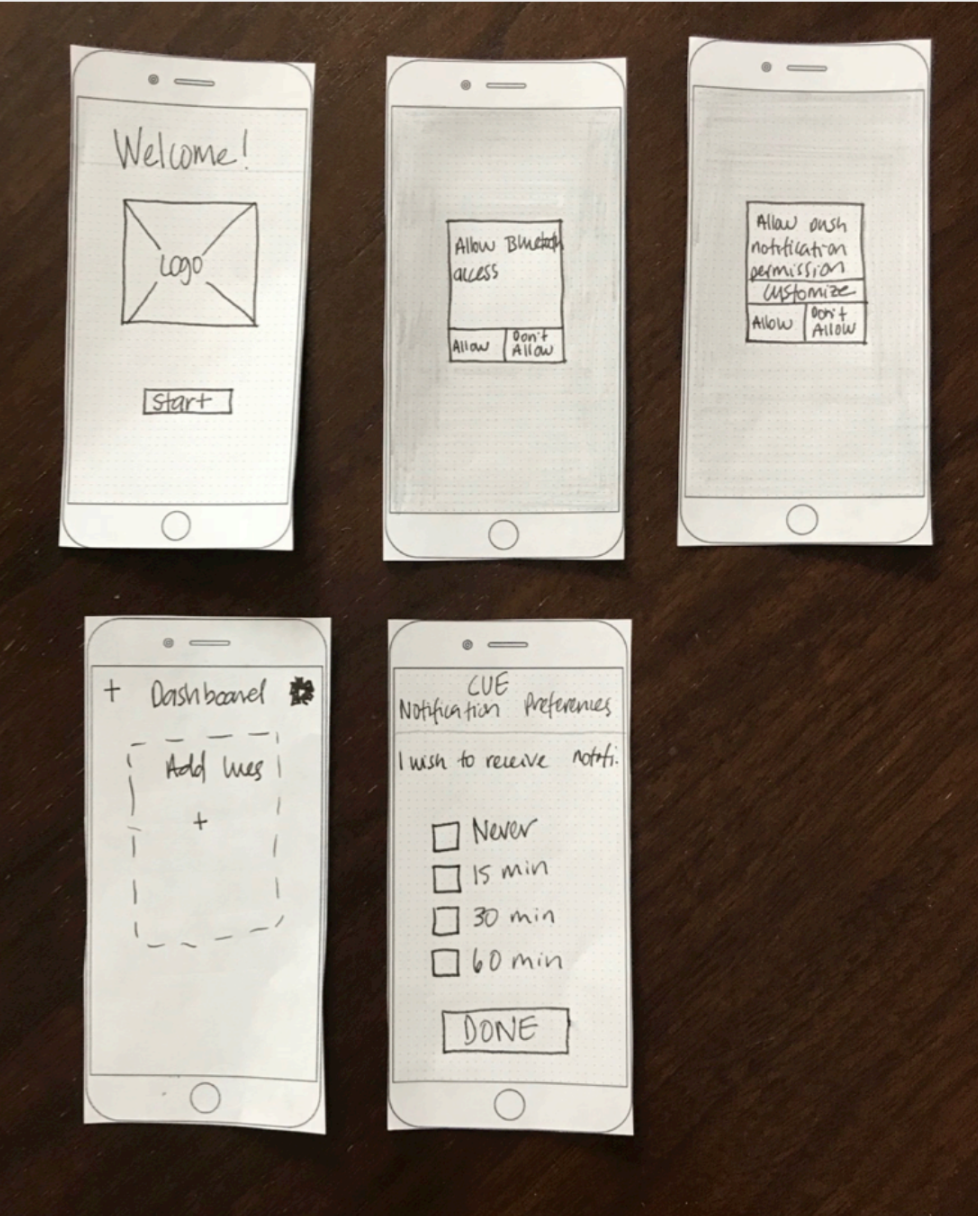 Welcome!
Logo
Start
Allow Bluetooth
access
Allow
Don't
Allow
Allow push
notification
permission
Customize
Allow
Don't
Allow
+ Dashboard
Add
+
CUE
Notification Preferences
I wish to receive notifi.
Never
15 min
30 min
60 min
DONE